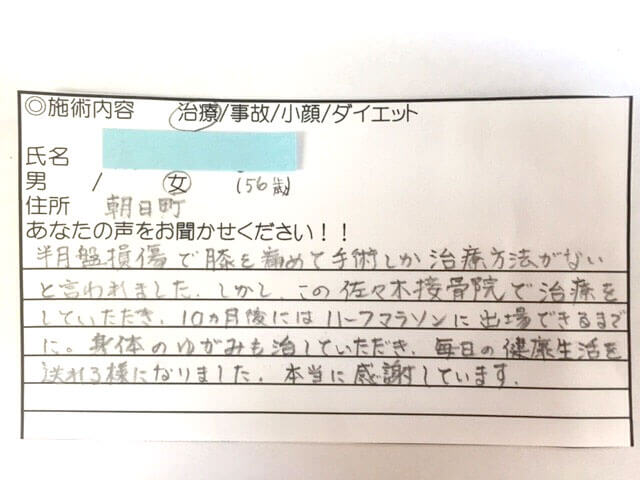 ◎施術内容 治療/事故/小顔/ダイエット
氏名
男 / 女 (56歳)
住所 朝日町
あなたの声をお聞かせください！！
半月盤損傷で膝を痛めて手術しか治療方法がない
と言われました。しかし、この佐々木接骨院で治療を
していただき、10ヵ月後にはハーフマラソンに出場できるまで
に。身体のゆがみも治していただき、毎日の健康生活を
送れる様になりました。本当に感謝しています。